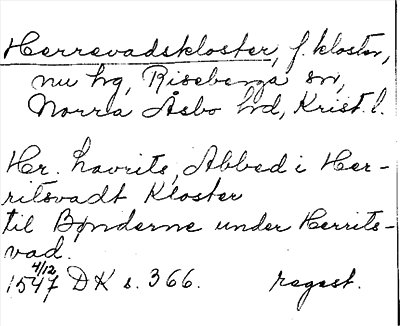 Herrevadskloster, f. kloster,
nu hg, Riseberga sn,
Norra Åsbo hd, Krist. l.
Hr. Lavrits, Abbed i Her-
ritsvadt Kloster
til Bønderne under Herrits-
vad.
1547 4/12 DK s. 366. regest.